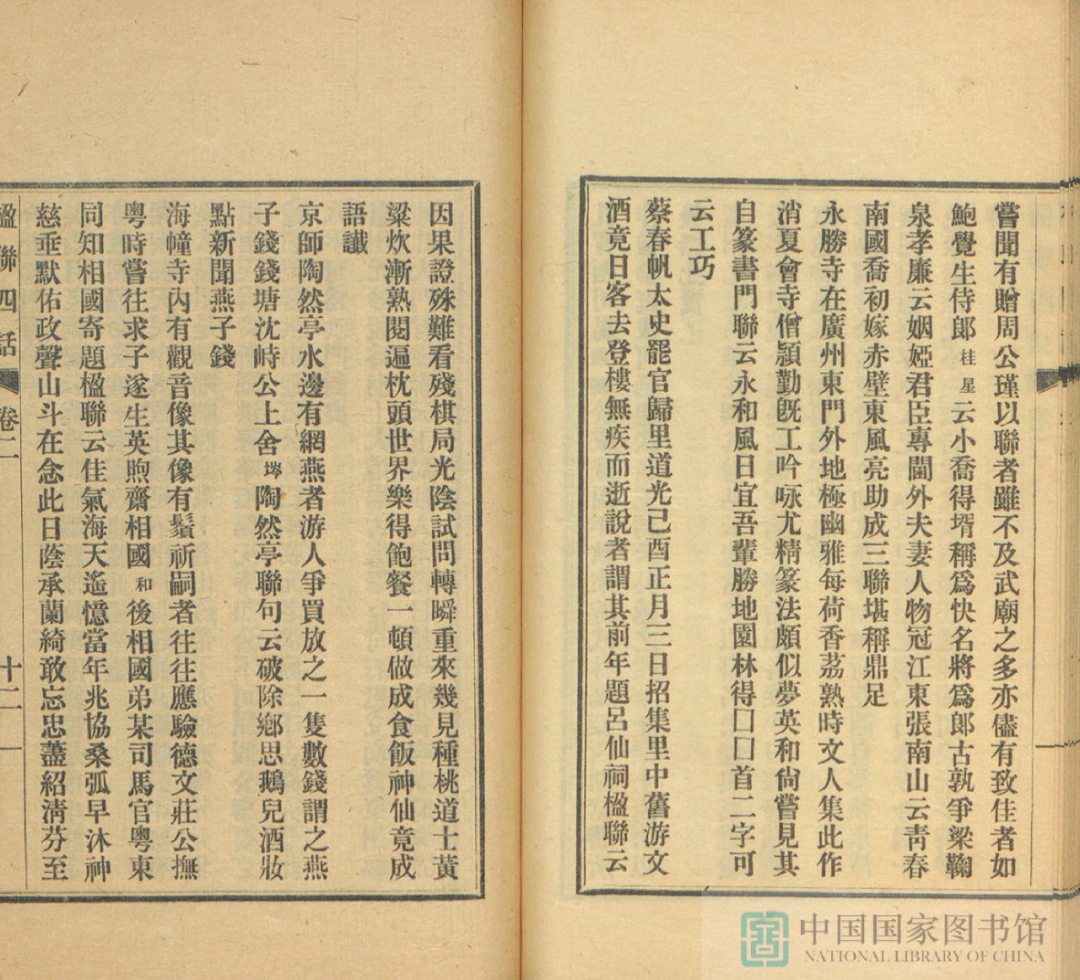 嘗聞有贈周公瑾以聯者雖不及武廟之多亦儘有致佳者如
鮑覺生侍郎桂星云小喬得壻稱爲快名將爲郎古孰爭梁鞠
泉孝廉云姻婭君臣專閫外夫妻人物冠江東張南山云靑春
南國喬初嫁赤壁東風亮助成三聯堪稱鼎足
永勝寺在廣州東門外地極幽雅每荷香荔熟時文人集此作
消夏會寺僧頴勤旣工吟咏尤精篆法頗似夢英和尙嘗見其
自篆書門聯云永和風日宜吾輩勝地園林得囗囗首二字可
云工巧
蔡春帆太史罷官歸里道光己酉正月三日招集里中舊游文
酒竟日客去登樓無疾而逝說者謂其前年題呂仙祠楹聯云
因果證殊難看殘棋局光陰試問轉瞬重來幾見種桃道士黃
粱炊漸熟閱遍枕頭世界樂得飽餐一頓做成食飯神仙竟成
語讖
京師陶然亭水邊有網燕者游人爭買放之一隻數錢謂之燕
子錢錢塘沈峙公上舍陶然亭聯句云破除鄕思鵝兒酒妝
點新聞燕子錢
海幢寺內有觀音像其像有鬚祈嗣者往往應驗德文莊公撫
粵時嘗往求子遂生英煦齋相國和後相國弟某司馬官粵東
同知相國寄題楹聯云佳氣海天遙憶當年兆協桑弧早沐神
慈垂默佑政聲山斗在念此日陰承蘭綺敢忘忠藎紹淸芬至
楹聯四話
卷二
十二
中国国家图书馆
NATIONAL LIBRARY OF CHINA